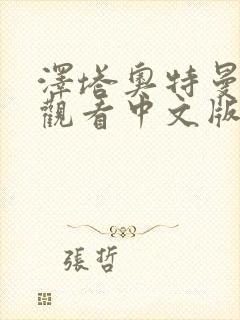 澤塔奧特曼
觀看中文版
張哲